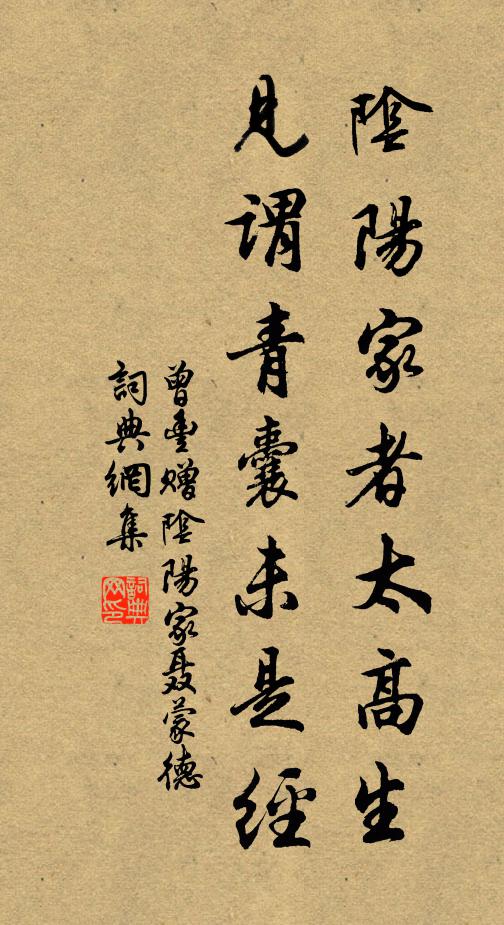 陰陽家者太高生
見謂青囊未是經
曾豊贈陰陽家聂蒙德
詞典網集
詞典網印